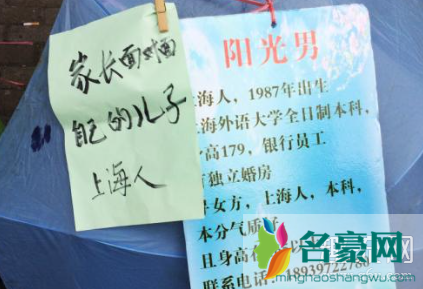 家长面对面
自己的儿子
上海人
阳光男
海人，1987年出生
海外语大学全日制本科，
高179，银行员工
独立婚房
女方，上海人，本科，
本分气质
且身高1
以
联系电话
名豪网
minghaoshangmao.com